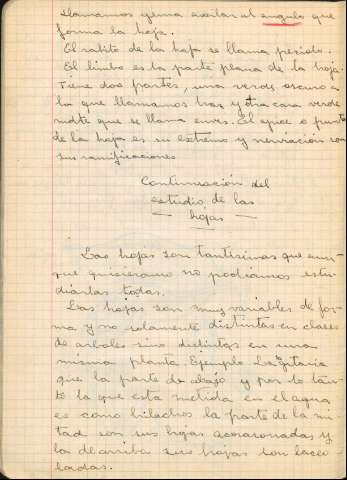 llamamos yema axilar al angulo que
forma la hoja.
El rabito de la hoja se llama peciolo.
El limbo es la parte plana de la hoja.
Tiene dos partes, una verde oscuro a
la que llamamos haz y otra cara verde
mate que se llama enves. El apice o punta
de la hoja es su extremo y nerviación son
sus ramificaciones
Continuación del
estudio de las
hojas
Las hojas son tantisimas que aun-
que quisieramo no podriamos estu-
diarlas todas.
Las hojas son muy variables de for-
ma y no solamente distintas en clases
de arboles sino distintas en una
misma planta. Ejemplo La gitaria
que la parte de abajo y por lo tan-
to la que esta metida en el agua
es como hilachos la parte de la mi-
tad son sus hojas acorazonadas y
la de arriba sus hojas son lanceo-
ladas.